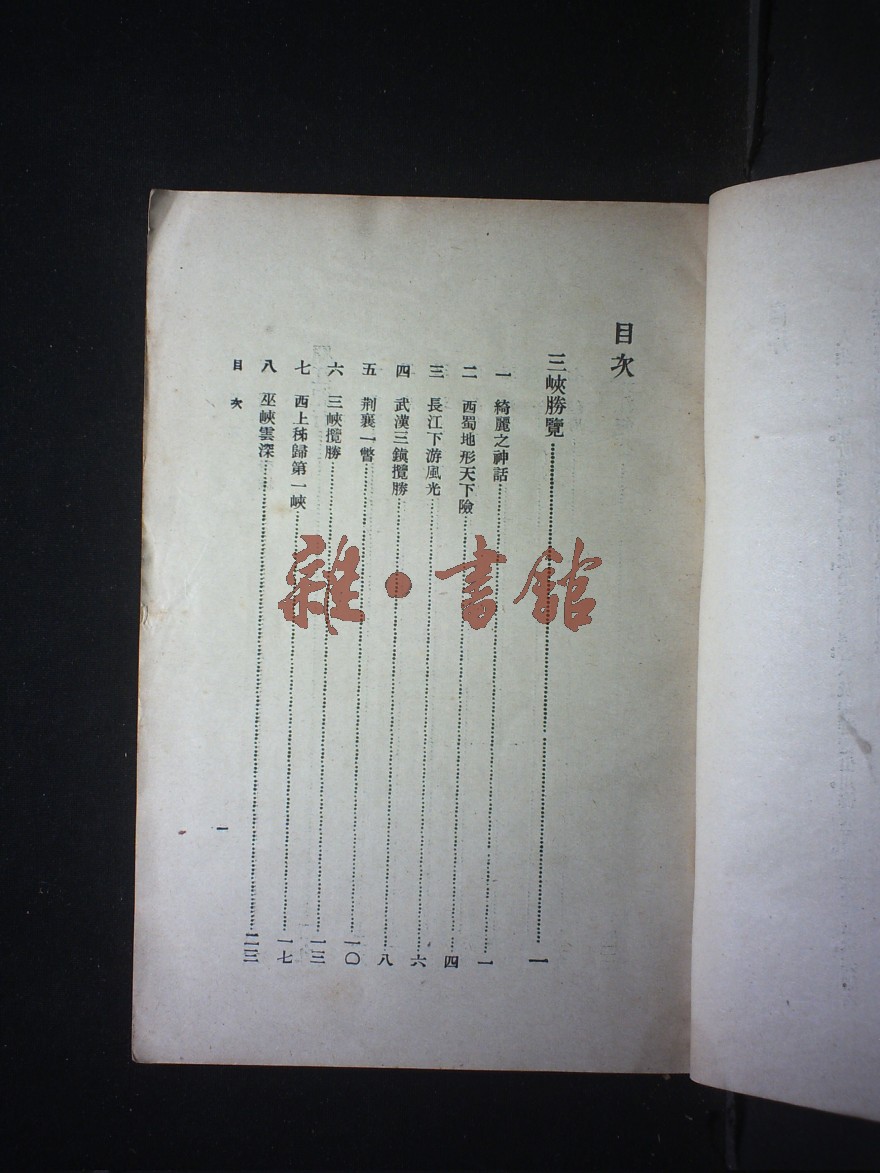 目次
三峽勝覽…………一
一 綺麗之神話…………一
二 西蜀地形天下險…………四
三 長江下游風光…………六
四 武漢三鎭攬勝…………八
五 荆襄一瞥…………一〇
六 三峽攬勝…………一三
七 西上秭歸第一峽…………一七
八 巫峽雲深…………二三
目次
一
雜·書館